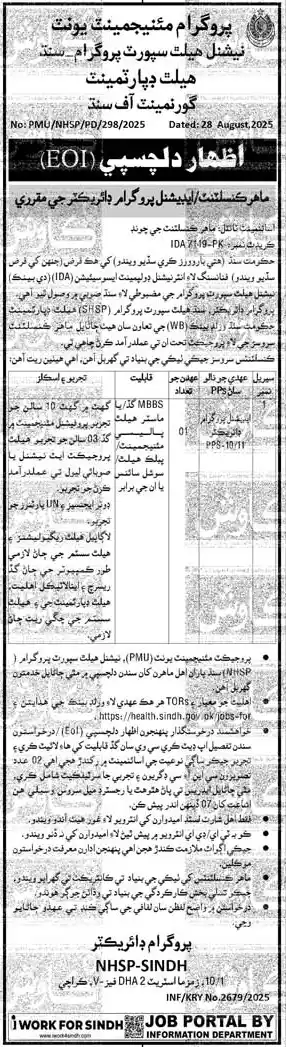 پروگرام مئنيجمينٽ يونٽ
نيشنل هيلٿ سپورٽ پروگرام_ سنڌ
هيلٿ ڊپارٽمينٽ
گورنمينٽ آف سنڌ
No: PMU/NHSP/PD/298/2025 Dated: 28 August,2025
اظهار دلچسپي (EOI)
ماهر ڪنسلٽنٽ/ايڊيشنل پروگرام ڊائريڪٽر جي مقرري
اسائنمينٽ ٽائٽل: ماهر ڪنسلٽنٽ جي چونڊ
ڪريڊٽ نمبر: IDA 7119-PK
حڪومت سنڌ (هتي بارووزر ڪري سڏيو ويندو) کي هڪ قرض (جنهن کي قرض
سڏيو ويندو) فنانسنگ لاءِ انٽرنيشنل ڊولپمينٽ ايسوسيئيشن (IDA) (دي بينڪ)
نيشنل هيلٿ سپورٽ پروگرام جي مضبوطي لاءِ سنڌ صوبي ۾ وصول ٿير آهي.
پروگرام ڊائريڪٽر، سنڌ هيلٿ سپورٽ پروگرام (SHSP) هيلٿ ڊپارٽمينٽ
حڪومت سنڌ ورلڊ بينڪ (WB) جي تعاون سان هيٺ ڄاڻايل ماهر ڪنسلٽنٽ
سروسز جي پروجيڪٽ تحت ان تي عملدرآمد ڪرڻ چاهي ٿي.
ڪنسلٽنٽس سروسز جيڪي ليڪي جي بنياد تي گهربل آهن، اهي هيٺين ريت آهن:
سيريل نمبر
عهدي جو نالو سان PPs
عهدن جو تعداد
قابليت
تجربو ۽ اسڪلز
1
ايڊيشنل پروگرام
ڊائريڪٽر
PPS-10/11
01
MBBS گڏ/يا
ماسٽر هيلٿ
پاليسي
مئنيجمينٽ/
پبلڪ هيلٿ/
سوشل سائنس
يا ان جي برابر
گهٽ ۾ گهٽ 10 سالن جو
تجربو پروفيشنل مئنيجمينٽ ۾
گڏ 03 سالن جو تجربو هيلٿ
پروجيڪٽ ايٽ نيشنل يا
صوبائي ليول تي عملدرآمد
ڪرڻ جو تجربو.
ڊونر ايجنسيز ۽ UN پارٽنرز جو
تجربو.
لاڳاپيل هيلٿ ريگيوليشنز ۽
هيلٿ سسٽم جي ڄاڻ لازمي
طور ڪمپيوٽر جي ڄاڻ گڏ
ريسرچ ۽ اينالائيٽڪل اهليت،
هيلٿ ڊپارٽمينٽ جي ۽ هيلٿ
سسٽم جي چڱي ريت ڄاڻ
لازمي.
پروجيڪٽ مئنيجمينٽ يونٽ (PMU)، نيشنل هيلٿ سپورٽ پروگرام (
NHSP) سنڌ پاران اهل ماهرن کان سندن دلچسپي ۾ مٿي ڄاڻايل خدمتون
گهربل آهن
اهليت جو معيار ۽ TORs هر هڪ عهدي لاءِ ورلڊ بينڪ جي هدايتن ۽
https://health.sindh.gov.pk/jobs-for.
خواهشمند درخواستگذار پنهنجون اظهار دلچسپي (EOI) / درخواستون
سندن تفصيل اپ ڊيٽ ڪري سي وي سان گڏ قابليت کي هاءِ لائيٽ ڪري ۽
تجربو جيڪو ساڳي نوعيت جي اسائنمينٽ ۾ رکندڙ هجي اهي 02 عدد
تصويرون سي اين آءِ سي ڊگرين ۽ تجربي جا سرٽيفڪيٽ شامل ڪري،
مٿي ڄاڻايل ايڊريس تي پاڻ هٿوهٿ يا رجسٽرڊ ميل سروس وسيلي هن
اشاعت کان 07 ڏينهن اندر پيش ڪن.
فقط اهل شارٽ لسٽڊ اميدوارن کي انٽرويو لاءِ غور هيٺ آندو ويندو.
ڪو به ٽي اي/ڊي اي انٽرويو ۾ پيش ٿيڻ لاءِ اميدوارن کي نه ڏنو ويندو.
جيڪي اڳواٽ ملازمت ڪندڙ هجن اهي پنهنجن ادارن معرفت درخواستون
موڪلين.
ماهر ڪنسلٽنٽس کي ليڪي جي بنياد تي ڪانٽريڪٽ تي گهرايو ويندو،
جيڪو تسلي بخش ڪارڪردگي جي بنياد تي وڌائڻ جوڳو هوندو.
درخواستن ۾ واضح لفظن سان لفافي جي ساڄي ڪنڊ تي عهدو ڄاڻايو
وڃي.
پروگرام ڊائريڪٽر
NHSP-SINDH
10/1، زمزما اسٽريٽ 2 DHA فيز-V، ڪراچي
INF/KRY No.2679/2025
I WORK FOR SINDH
www.iwork4sindh.com
JOB PORTAL BY
INFORMATION DEPARTMENT